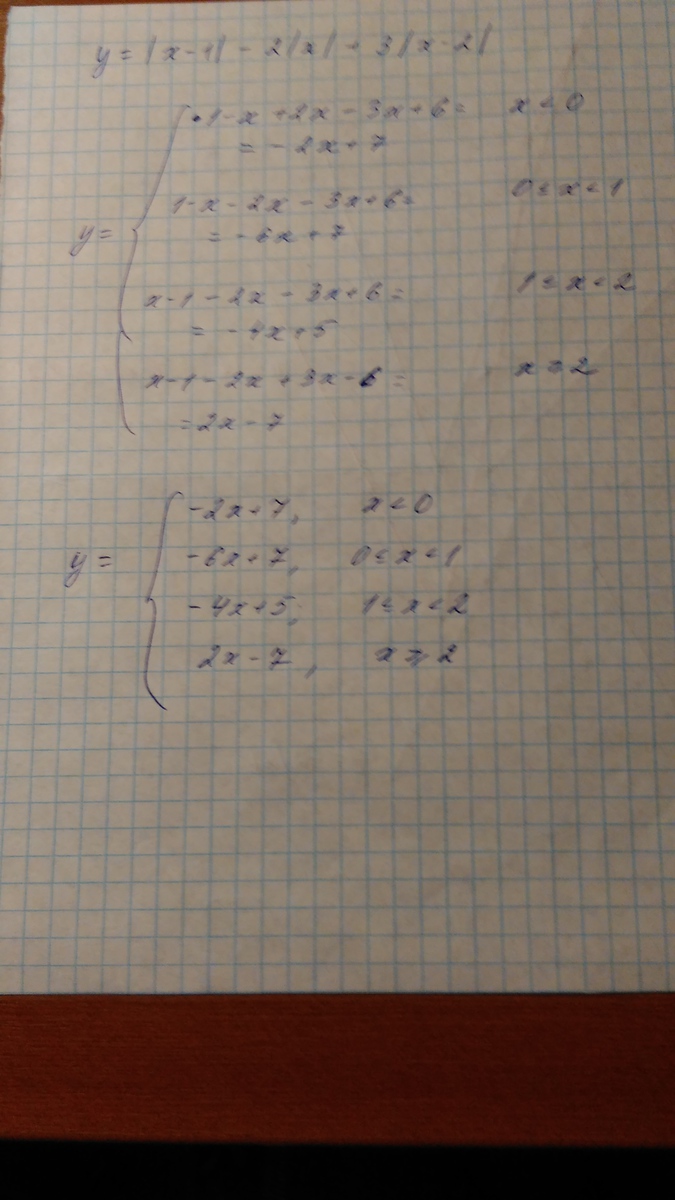 y = |x-1| - 2|x| + 3|x-2|
y = { 1-x+2x-3x+6= x<0
= -2x+7
1-x-2x-3x+6= 0≤x<1
= -6x+7
x-1-2x-3x+6= 1≤x<2
= -4x+5
x-1-2x+3x-6= x≥2
= 2x-7
y = { -2x+7, x<0
-6x+7, 0≤x<1
-4x+5, 1≤x<2
2x-7, x≥2